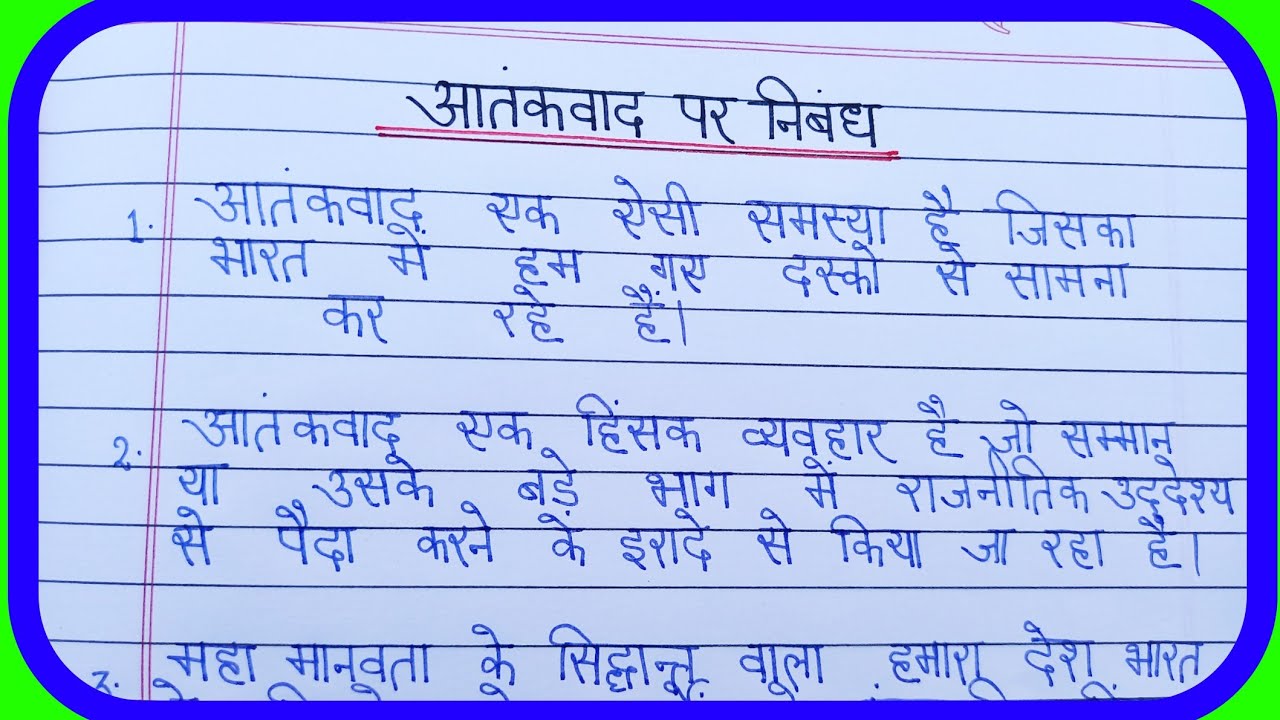 आतंकवाद पर निबंध
1. आतंकवाद एक ऐसी समस्या है जिसका
भारत में हम गए दस्को से सामना
कर रहे हैं।
2. आतंकवाद एक हिंसक व्यवहार है जो सम्मान
या उसके बड़े भाग में राजनीतिक उद्देश्य
से पैदा करने के इरादे से किया जा रहा है।
3. महा मानवता के सिद्धान्त वाला हमारा देश भारत